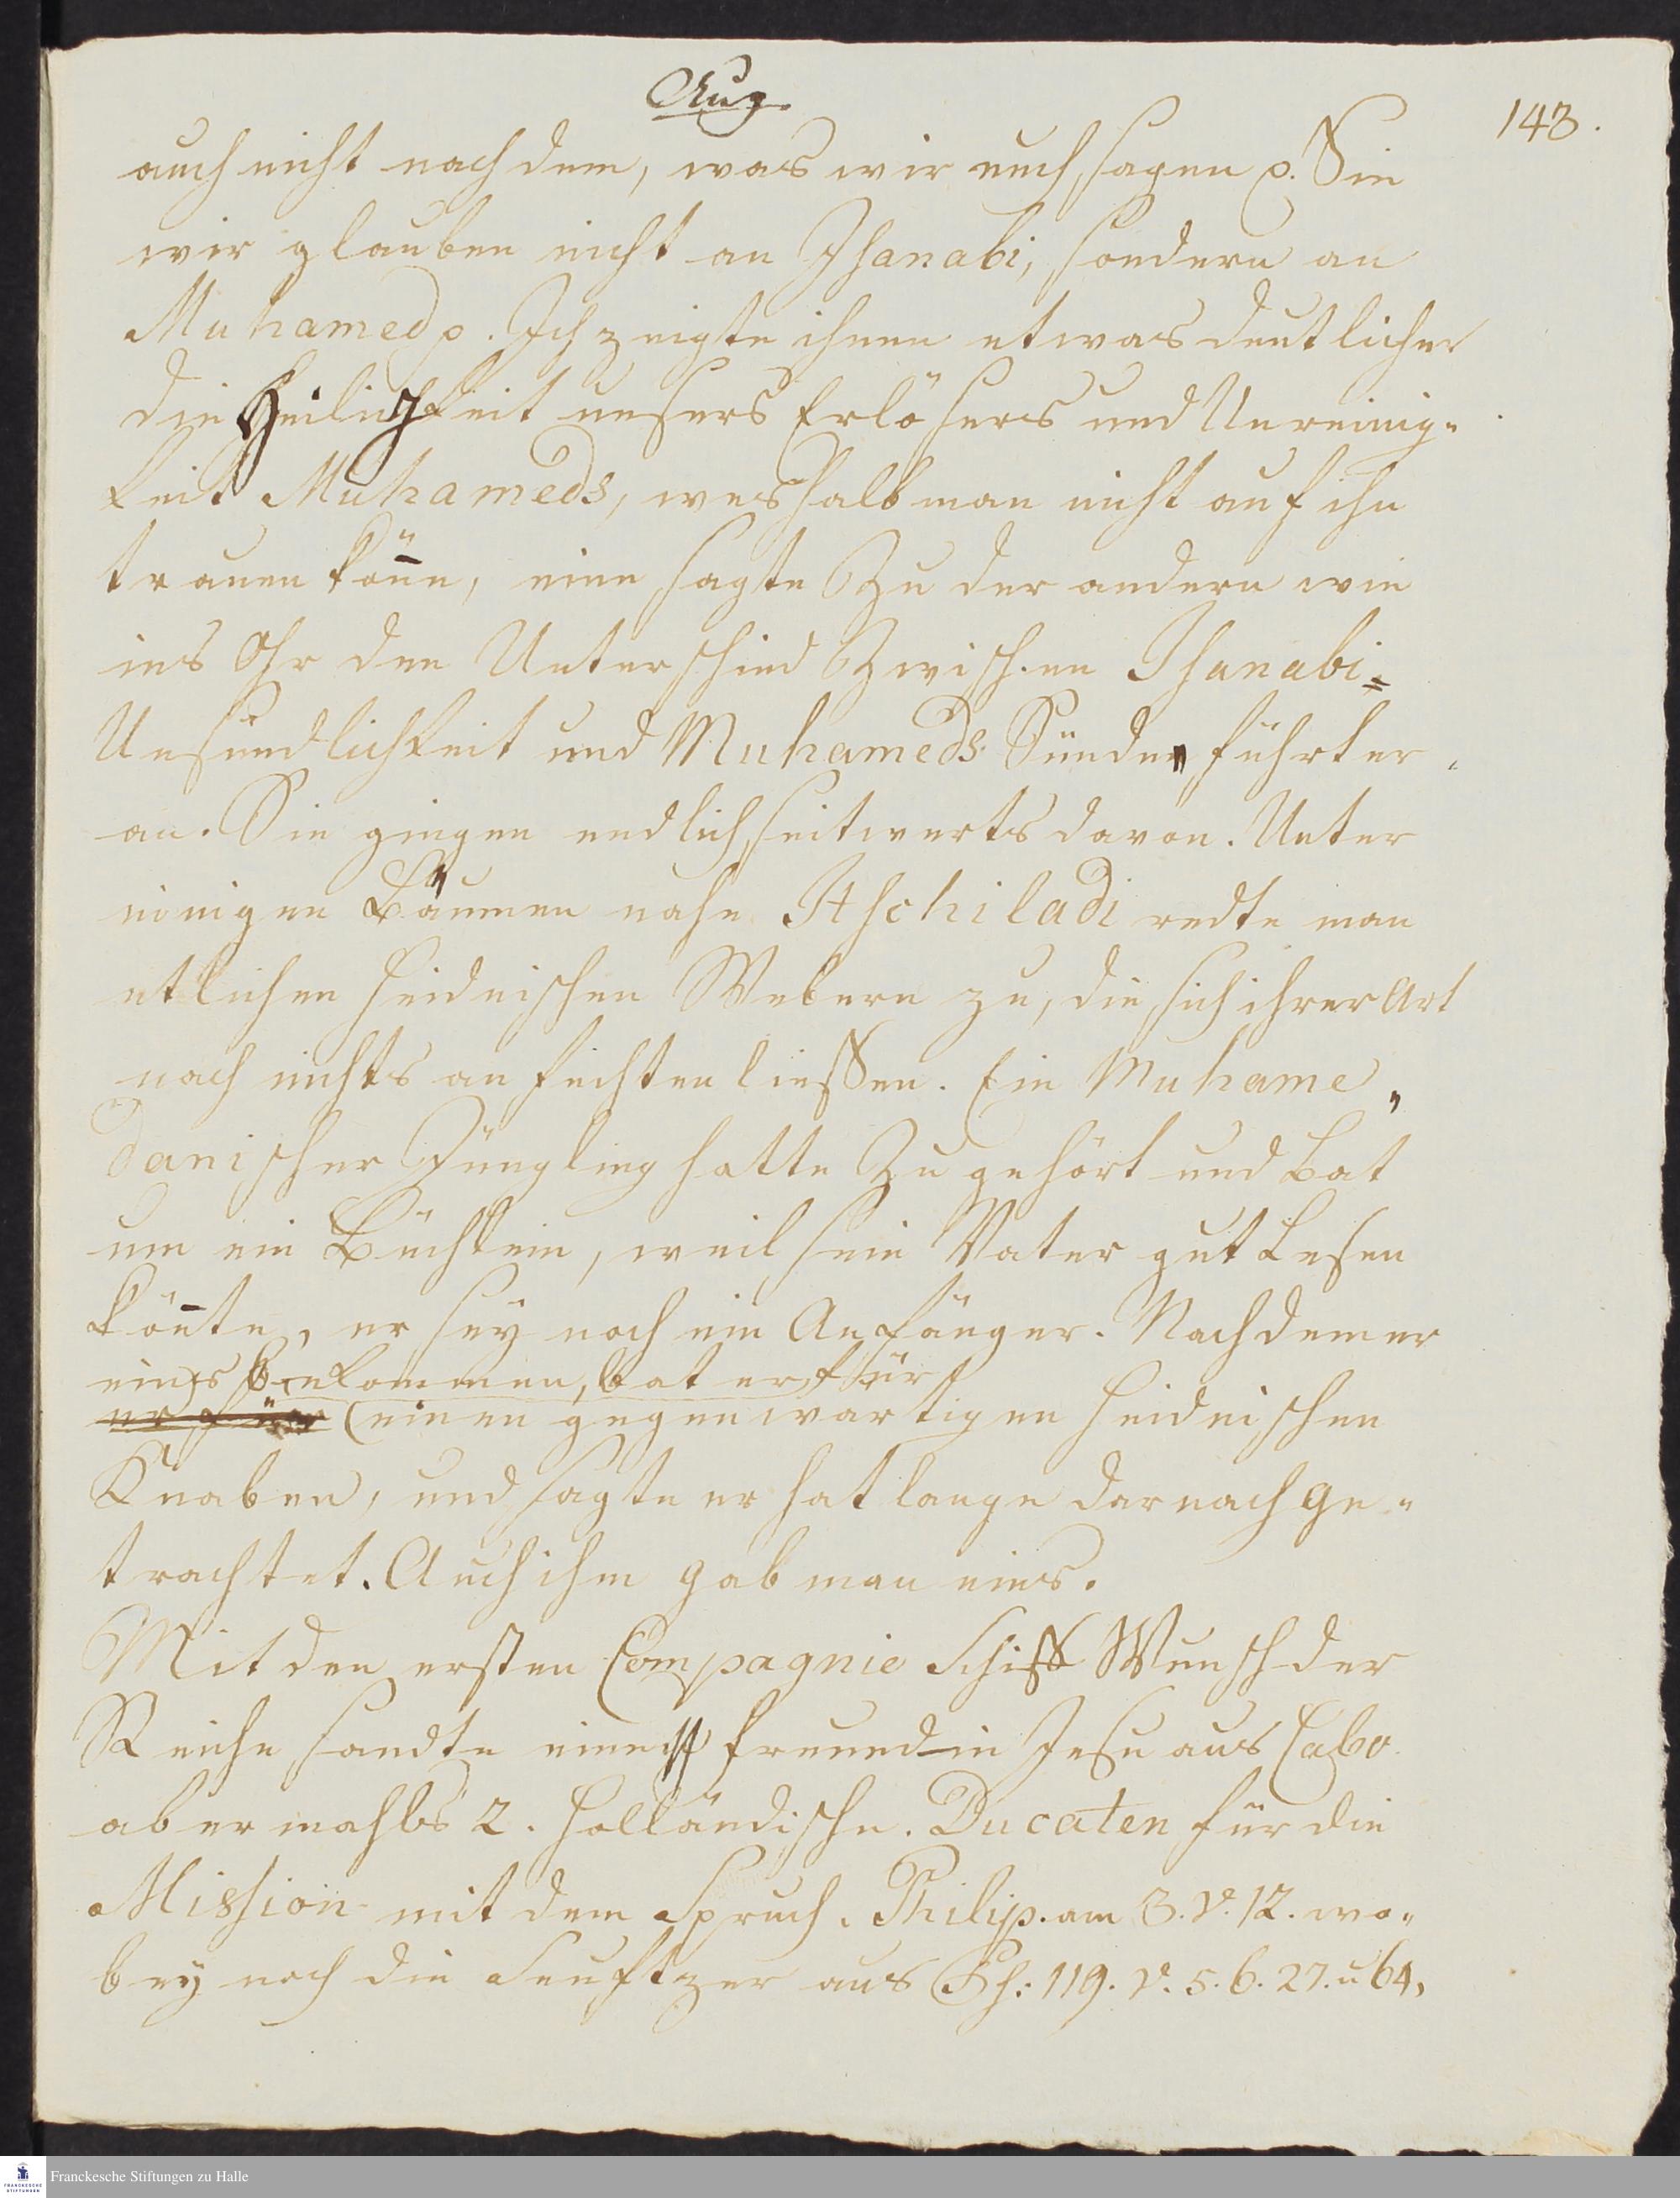 Aug.
143.
auch nicht nach dem, was wir euch sagen p. Sie
wir glauben nicht an Isanabi, sondern an
Muhamed p. Ich zeigte ihnen etwas deutlicher
die Heiligkeit unsers Erlösers und Unreinig-
keit Muhameds, weshalb man nicht auf ihn
trauen kön̄e, einer sagte zu der andern wie
ins Ohr den Unterschied zwischen Isanabi=
Unsündlichkeit und Muhameds Sünden führt er
an. Sie gingen endlich seitwerts davon. Unter
einigen Bäumen nahe Itschiladi redte man
etlichen heidnischen Webern zu, die sich ihrer Art
nach nichts anfechten liessen. Ein Muhame„
danischer Jüngling hatte zu gehört und bat
um ein Büchlein, weil sein Vater gut Lesen
kön̄te, er sey noch ein Anfänger. Nachdem er
eines bekommen, bat er für
er für einen gegenwartigen heidnischen
Knaben, und sagte er hat lange darnach ge-
trachtet. Auch ihm gab man eins.
Mit den ersten Compagnie Schiff Wunsch der
Reiche sandte ein Freund in Jesu aus Cabo
abermahls 2. holländische. Ducaten für die
Mission mit dem Spruch. Philip. am 3. v. 12. wo-
bey noch die Seuftzer aus Ps: 119. v. 5. 6. 27. u 64,
Franckesche Stiftungen zu Halle